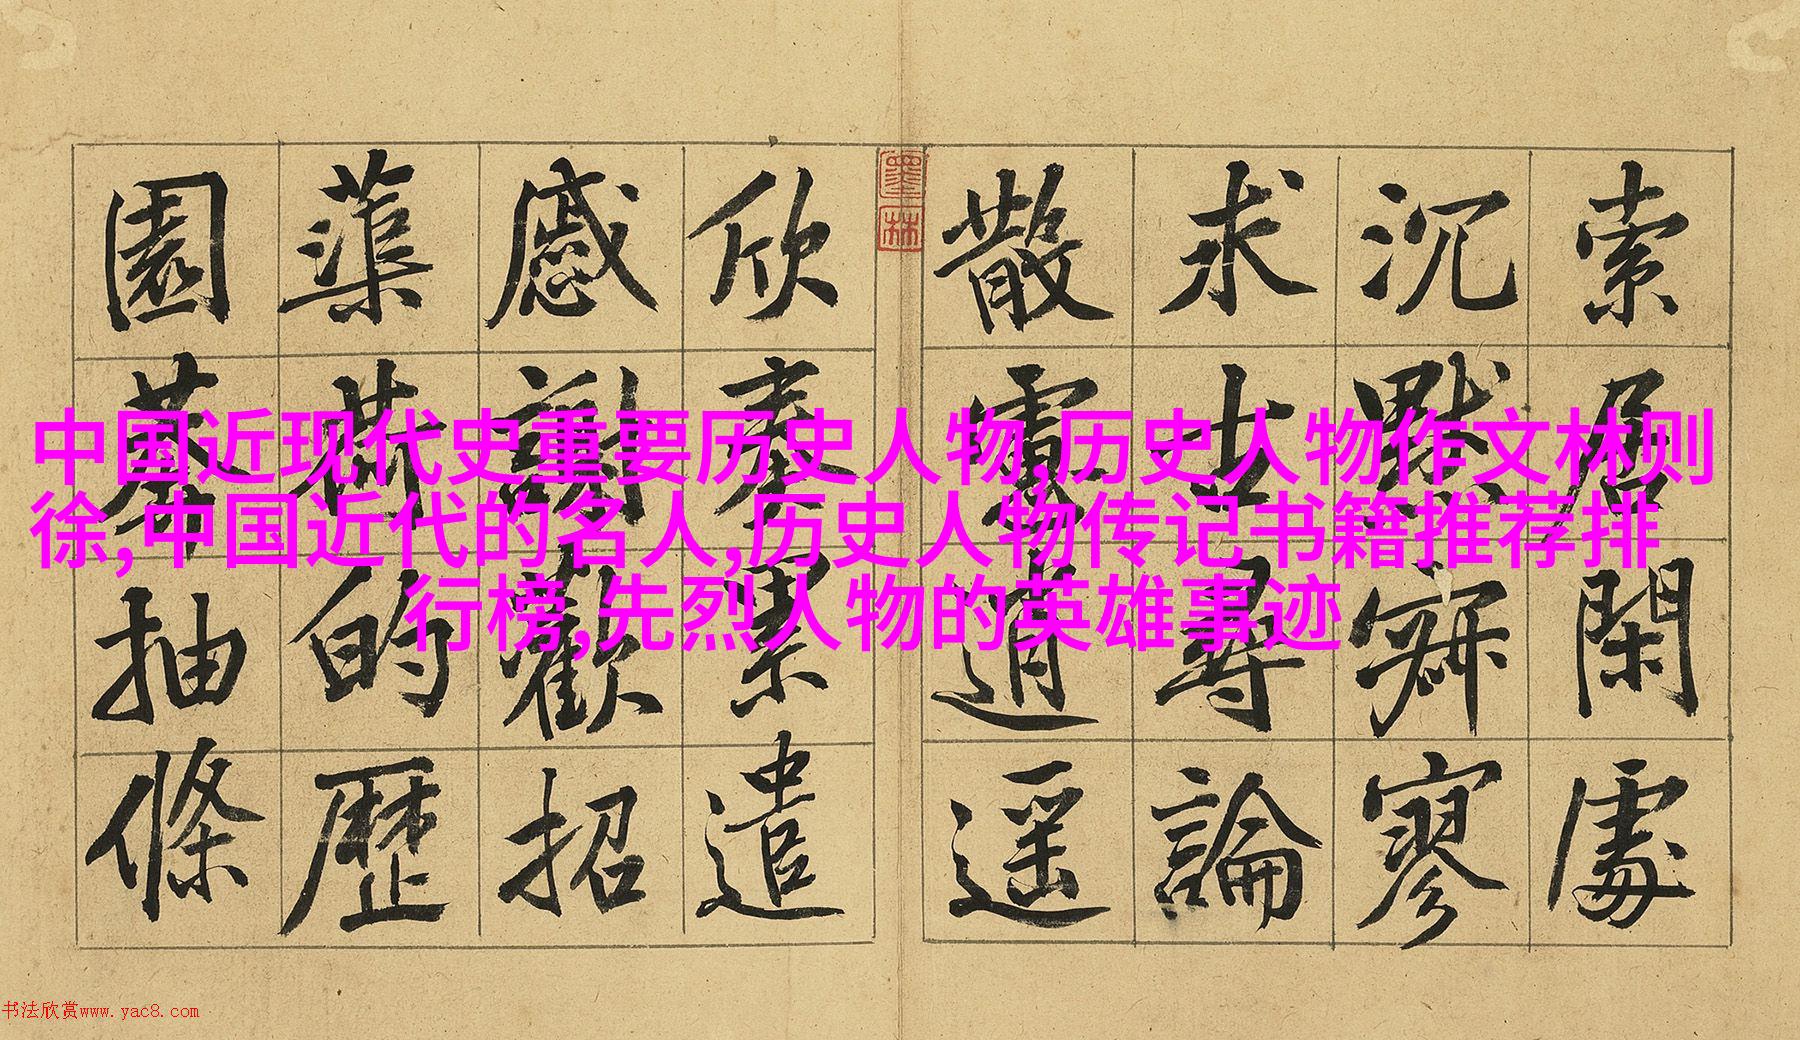 索居閑處
沉默寂寥
求古尋論
散慮逍遥
欣奏累遣
慼謝歡招
蕖荷的歷
園莽抽條
墨林
中国近现代史重要历史人物,历史人物作文林则
徐,中国近代的名人,历史人物传记书籍推荐排
行榜,先烈人物的英雄事迹
书法欣赏www.yac8.com